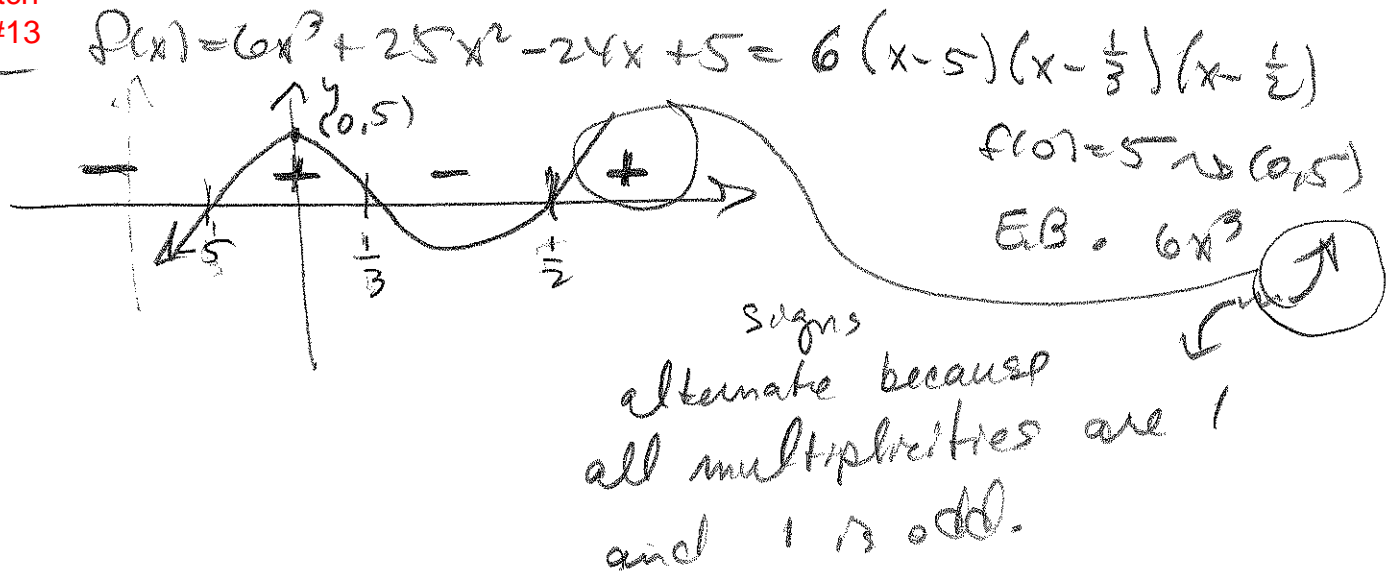 #13
f(x) = 6x³ + 25x² - 24x + 5 = 6(x-5)(x-1/3)(x-1/2)
y
(0,5)
f(0) = 5 ⇝ (0,5)
- + - +
E.B. 6x³
-5 1/3 1/2
signs
alternate because
all multiplicities are 1
and 1 is odd.